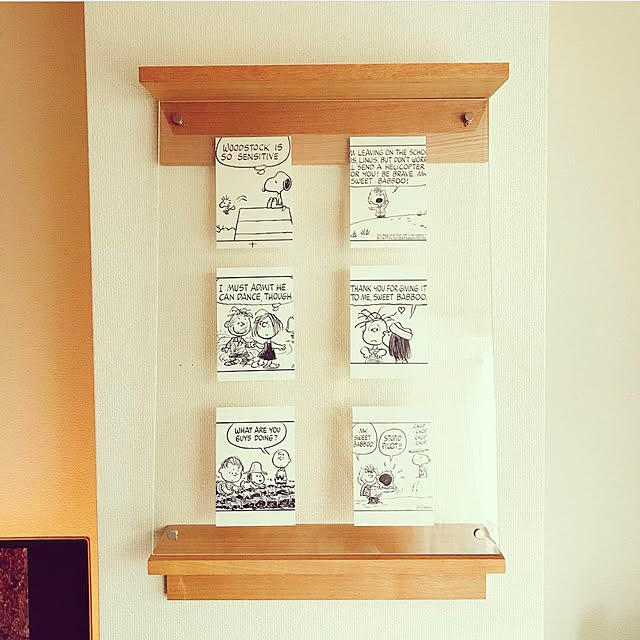 WOODSTOCK IS
SO SENSITIVE
LEAVING ON THE
LINUS, BUT DON'T
SEND A HELICOPTER
YOU! BE BRAVE, MY
SWEET BABBOO!
I MUST ADMIT HE
CAN DANCE, THOUGH
THANK YOU FOR GIVING IT
TO ME, SWEET BABBOO.
WHAT ARE YOU
GUYS DOING?
MY
SWEET
BABBOO!
STUPID
PILOT!!
CHOP
CHOP
CHOP
CHOP